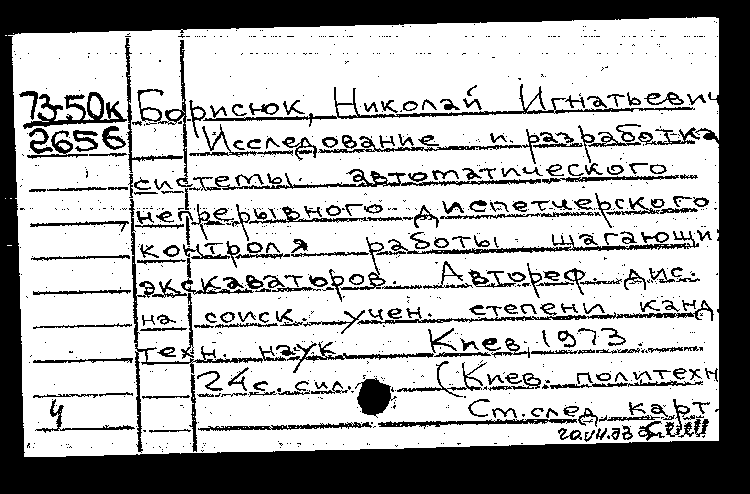 73-50к Борисюк, Николай Игнатьевич
2656 Исследование и разработка
системы автоматического
непрерывного диспетчерского
контроля работы шагающи
экскаваторов. Автореф. дис.
на соиск. учен. степени канд.
техн. наук. Киев, 1973.
24 с. сил. (Киев. политехн
Ч См. след. карт.
20.VII.73